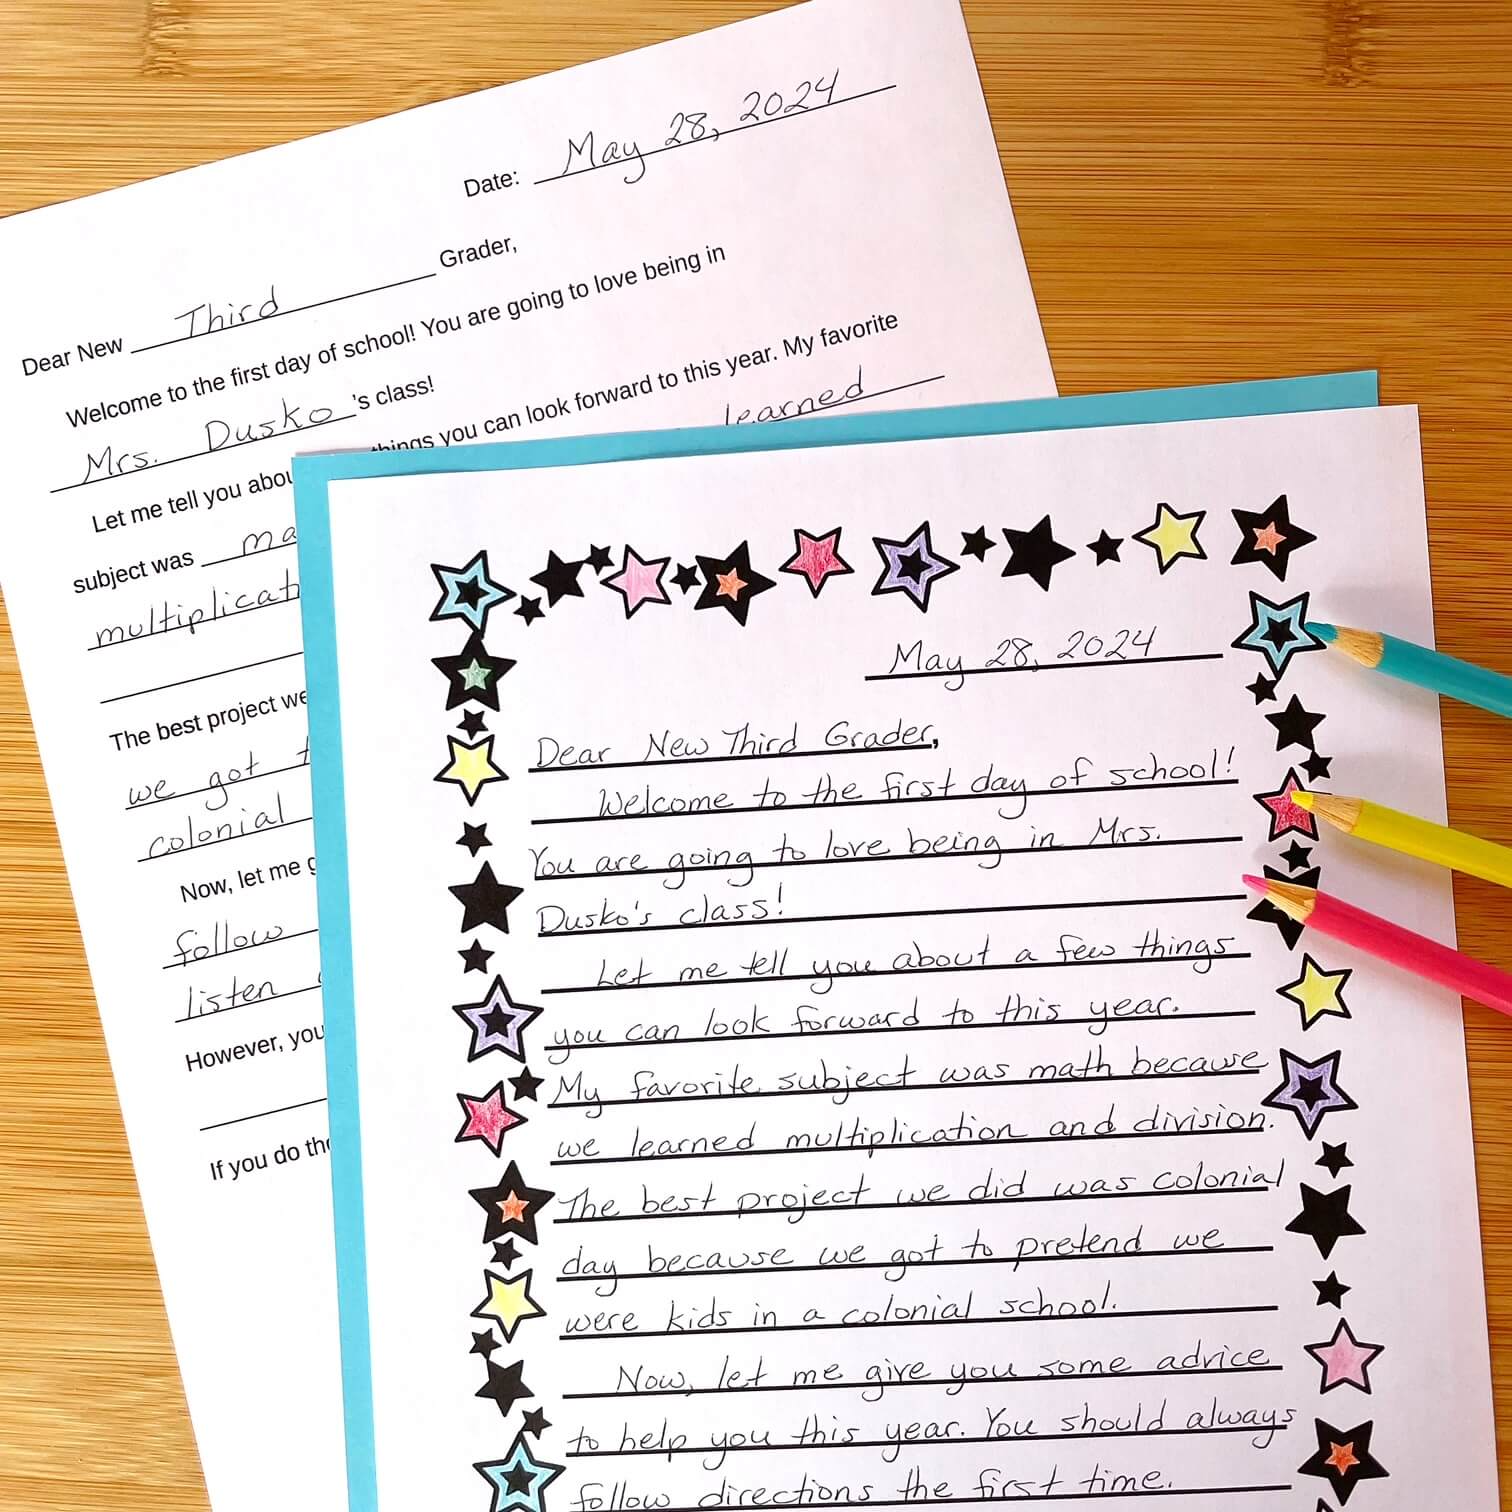 Date: May 28, 2024
Dear New Third Grader,
Welcome to the first day of school! You are going to love being in
Mrs. Dusko 's class!
Let me tell you about things you can look forward to this year. My favorite
subject was learned
multiplicat
The best project we
we got
colonial
Now, let me
follow
listen
However, you
If you do
May 28, 2024
Dear New Third Grader,
Welcome to the first day of school!
You are going to love being in Mrs.
Dusko's class!
Let me tell you about a few things
you can look forward to this year.
My favorite subject was math because
we learned multiplication and division.
The best project we did was colonial
day because we got to pretend we
were kids in a colonial school.
Now, let me give you some advice
to help you this year. You should always
follow directions the first time.